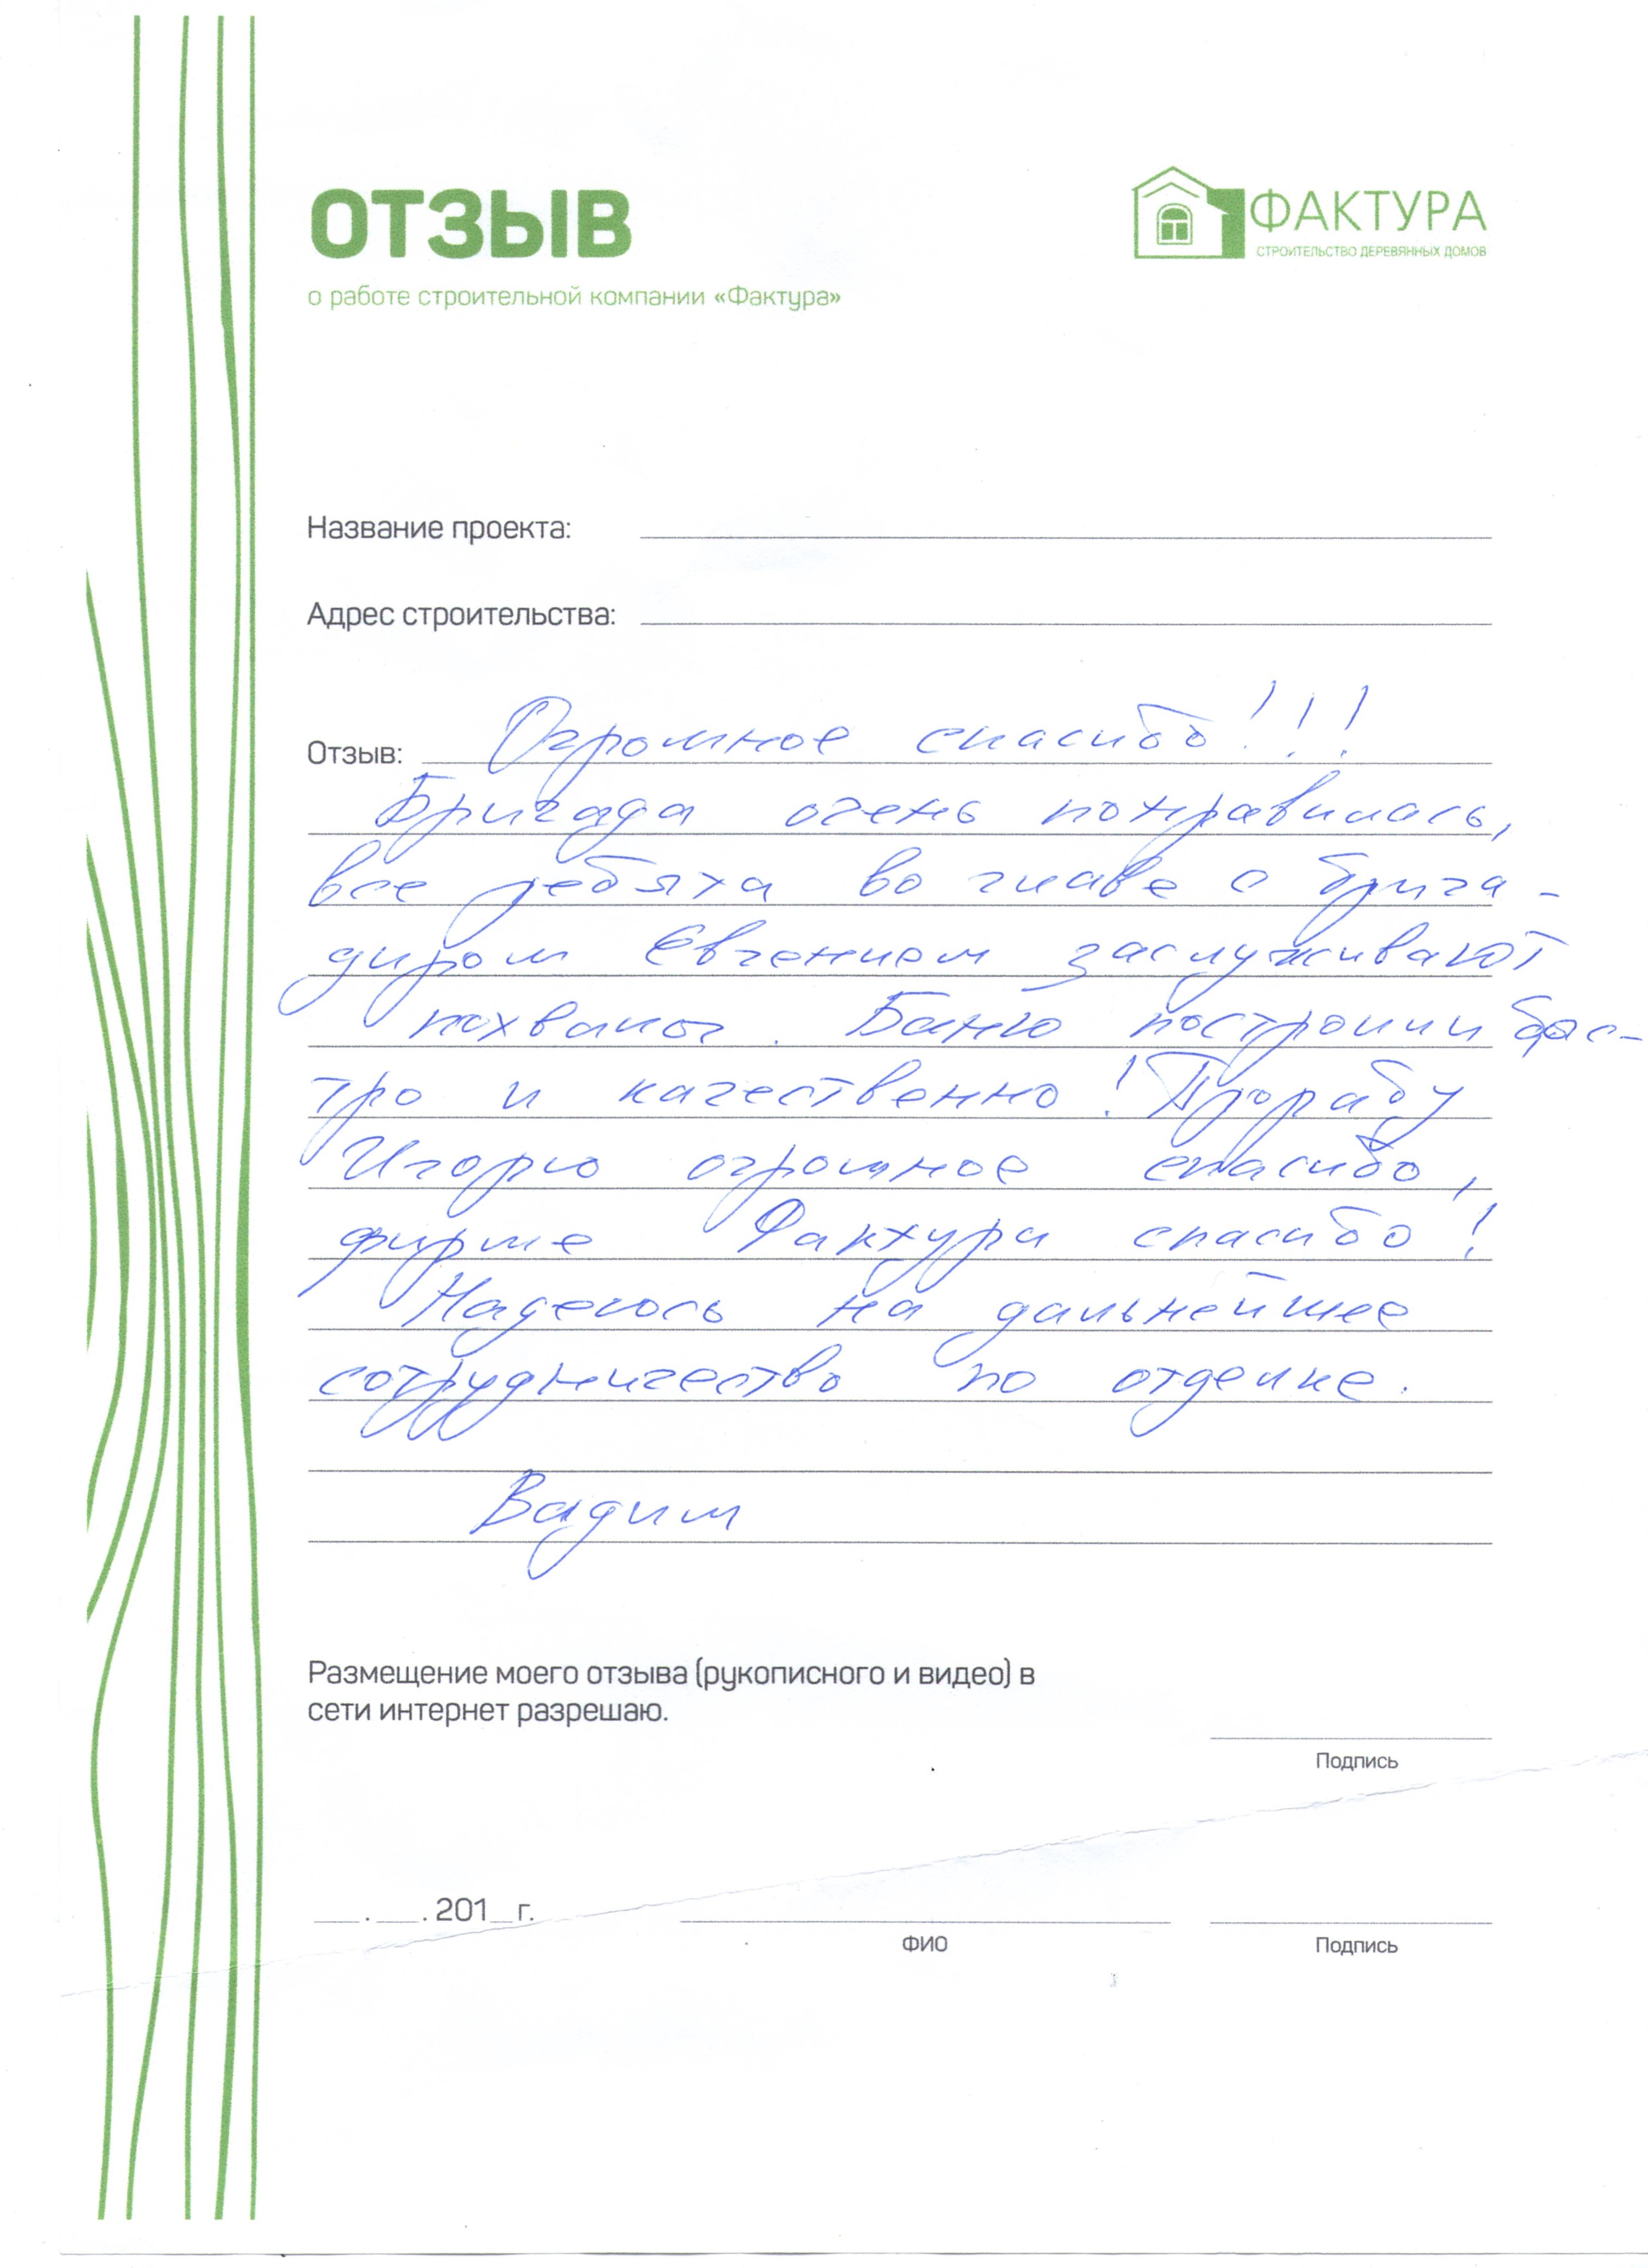 ОТЗЫВ
ФАКТУРА
СТРОИТЕЛЬСТВО ДЕРЕВЯННЫХ ДОМОВ
о работе строительной компании «Фактура»
Название проекта:
Адрес строительства:
Отзыв: Огромное спасибо!!!
Бригада очень понравилась,
все ребята во главе с брига-
диром Евгением заслуживают
похвалы. Баню построили быс-
тро и качественно! Прорабу
Игорю огромное спасибо,
фирме Фактура спасибо!
Надеюсь на дальнейшее
сотрудничество по отделке.
Вадим
Размещение моего отзыва (рукописного и видео) в
сети интернет разрешаю.
Подпись
__.__.201_г.
ФИО Подпись